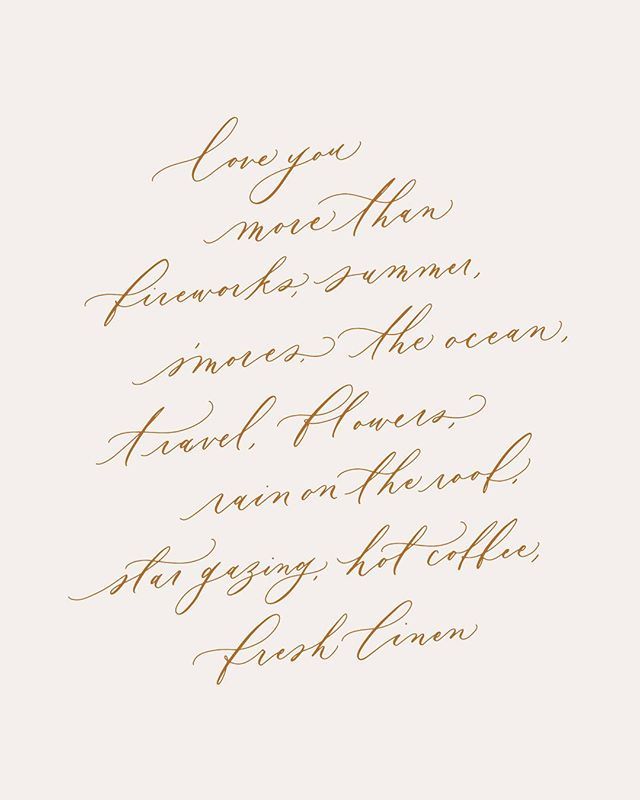 love you
more than
fireworks, summer,
s'mores, the ocean,
travel, flowers,
rain on the roof,
star gazing, hot coffee,
fresh linen